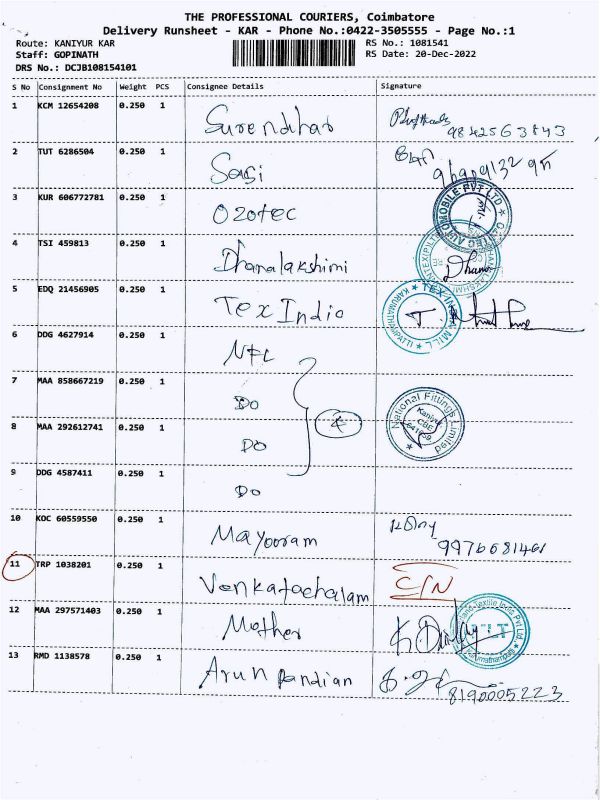 THE PROFESSIONAL COURIERS, Coimbatore
Delivery Runsheet - KAR - Phone No.:0422-3505555 - Page No.:1
Route: KANIYUR KAR RS No.: 1081541
Staff: GOPINATH RS Date: 20-Dec-2022
DRS No.: DCJB108154101
S No Consignment No Weight PCS Consignee Details Signature
1 KCM 12654208 0.250 1 Surendhar
9842563843
2 TUT 6286504 0.250 1 Sasi
3 KUR 606772781 0.250 1 Ozotec
4 TSI 459813 0.250 1 Dhanalakshimi Dhana
5 EDQ 21456905 0.250 1 Tex India
TEX INDIA MILL KARUMATHAMPATTI T
6 DDG 4627914 0.250 1 NFL
7 MAA 858667219 0.250 1 Do
8 MAA 292612741 0.250 1 Do 4 National Fittings Limited Kaniyur CBE 641659
9 DDG 4587411 0.250 1 Do
10 KOC 60559550 0.250 1 Mayooram
9976681461
11 TRP 1038201 0.250 1 Venkatachalam C/N
12 MAA 297571403 0.250 1 Mother
13 RMD 1138578 0.250 1 Arun Pandian
8190005223